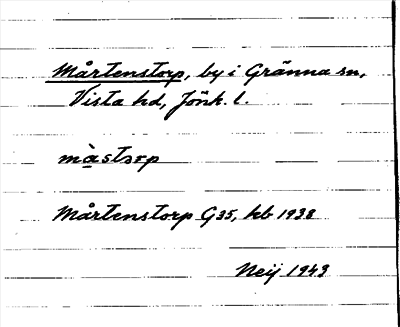 Mårtenstorp, by i Gränna sn,
Vista hd, Jönk. l.
màstɔrp
Mårtenstorp G35, kb 1938
Neij 1943